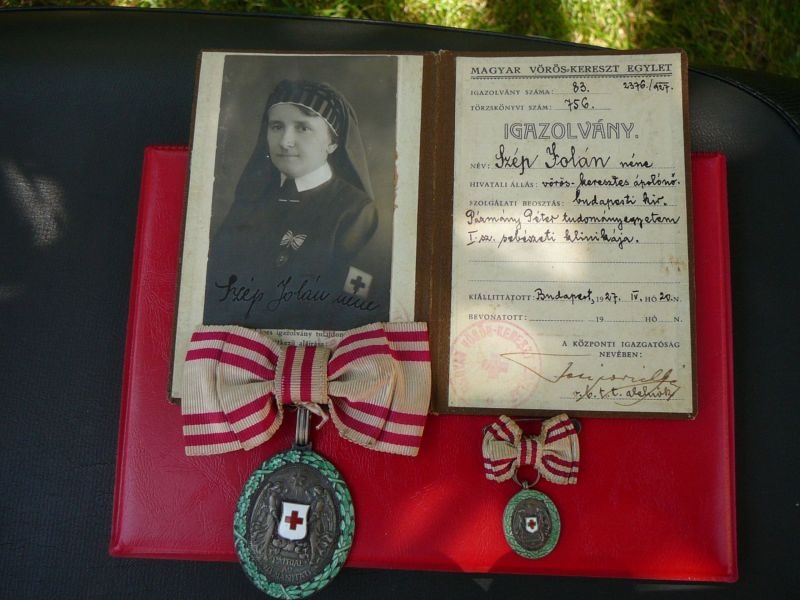 Szép Jolán néne
MAGYAR VÖRÖS-KERESZT EGYLET
IGAZOLVÁNY SZÁMA: 83. 2376/927.
TÖRZSKÖNYVI SZÁM: 756.
IGAZOLVÁNY.
NÉV: Szép Jolán néne
HIVATALI ÁLLÁS: vörös-keresztes ápolónő.
SZOLGÁLATI BEOSZTÁS: budapesti kir.
Pázmány Péter tudományegyetem
I. sz. sebészeti klinikája.
KIÁLLÍTTATOTT: Budapest, 1927. IV. HÓ 20. N.
BEVONATOTT: 19 HÓ N.
A KÖZPONTI IGAZGATÓSÁG
NEVÉBEN:
alelnök
PATRIAE
AC
HUMANITATI